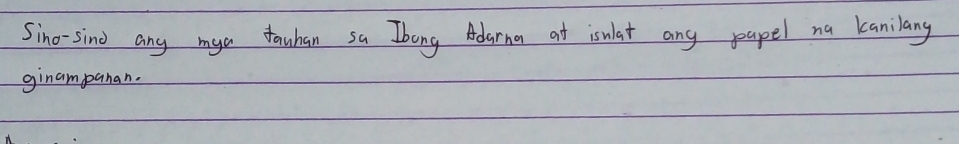 Sino-sino ang mga tauhan sa Ibong Adarna at isulat ang papel na kanilang
ginampanan.